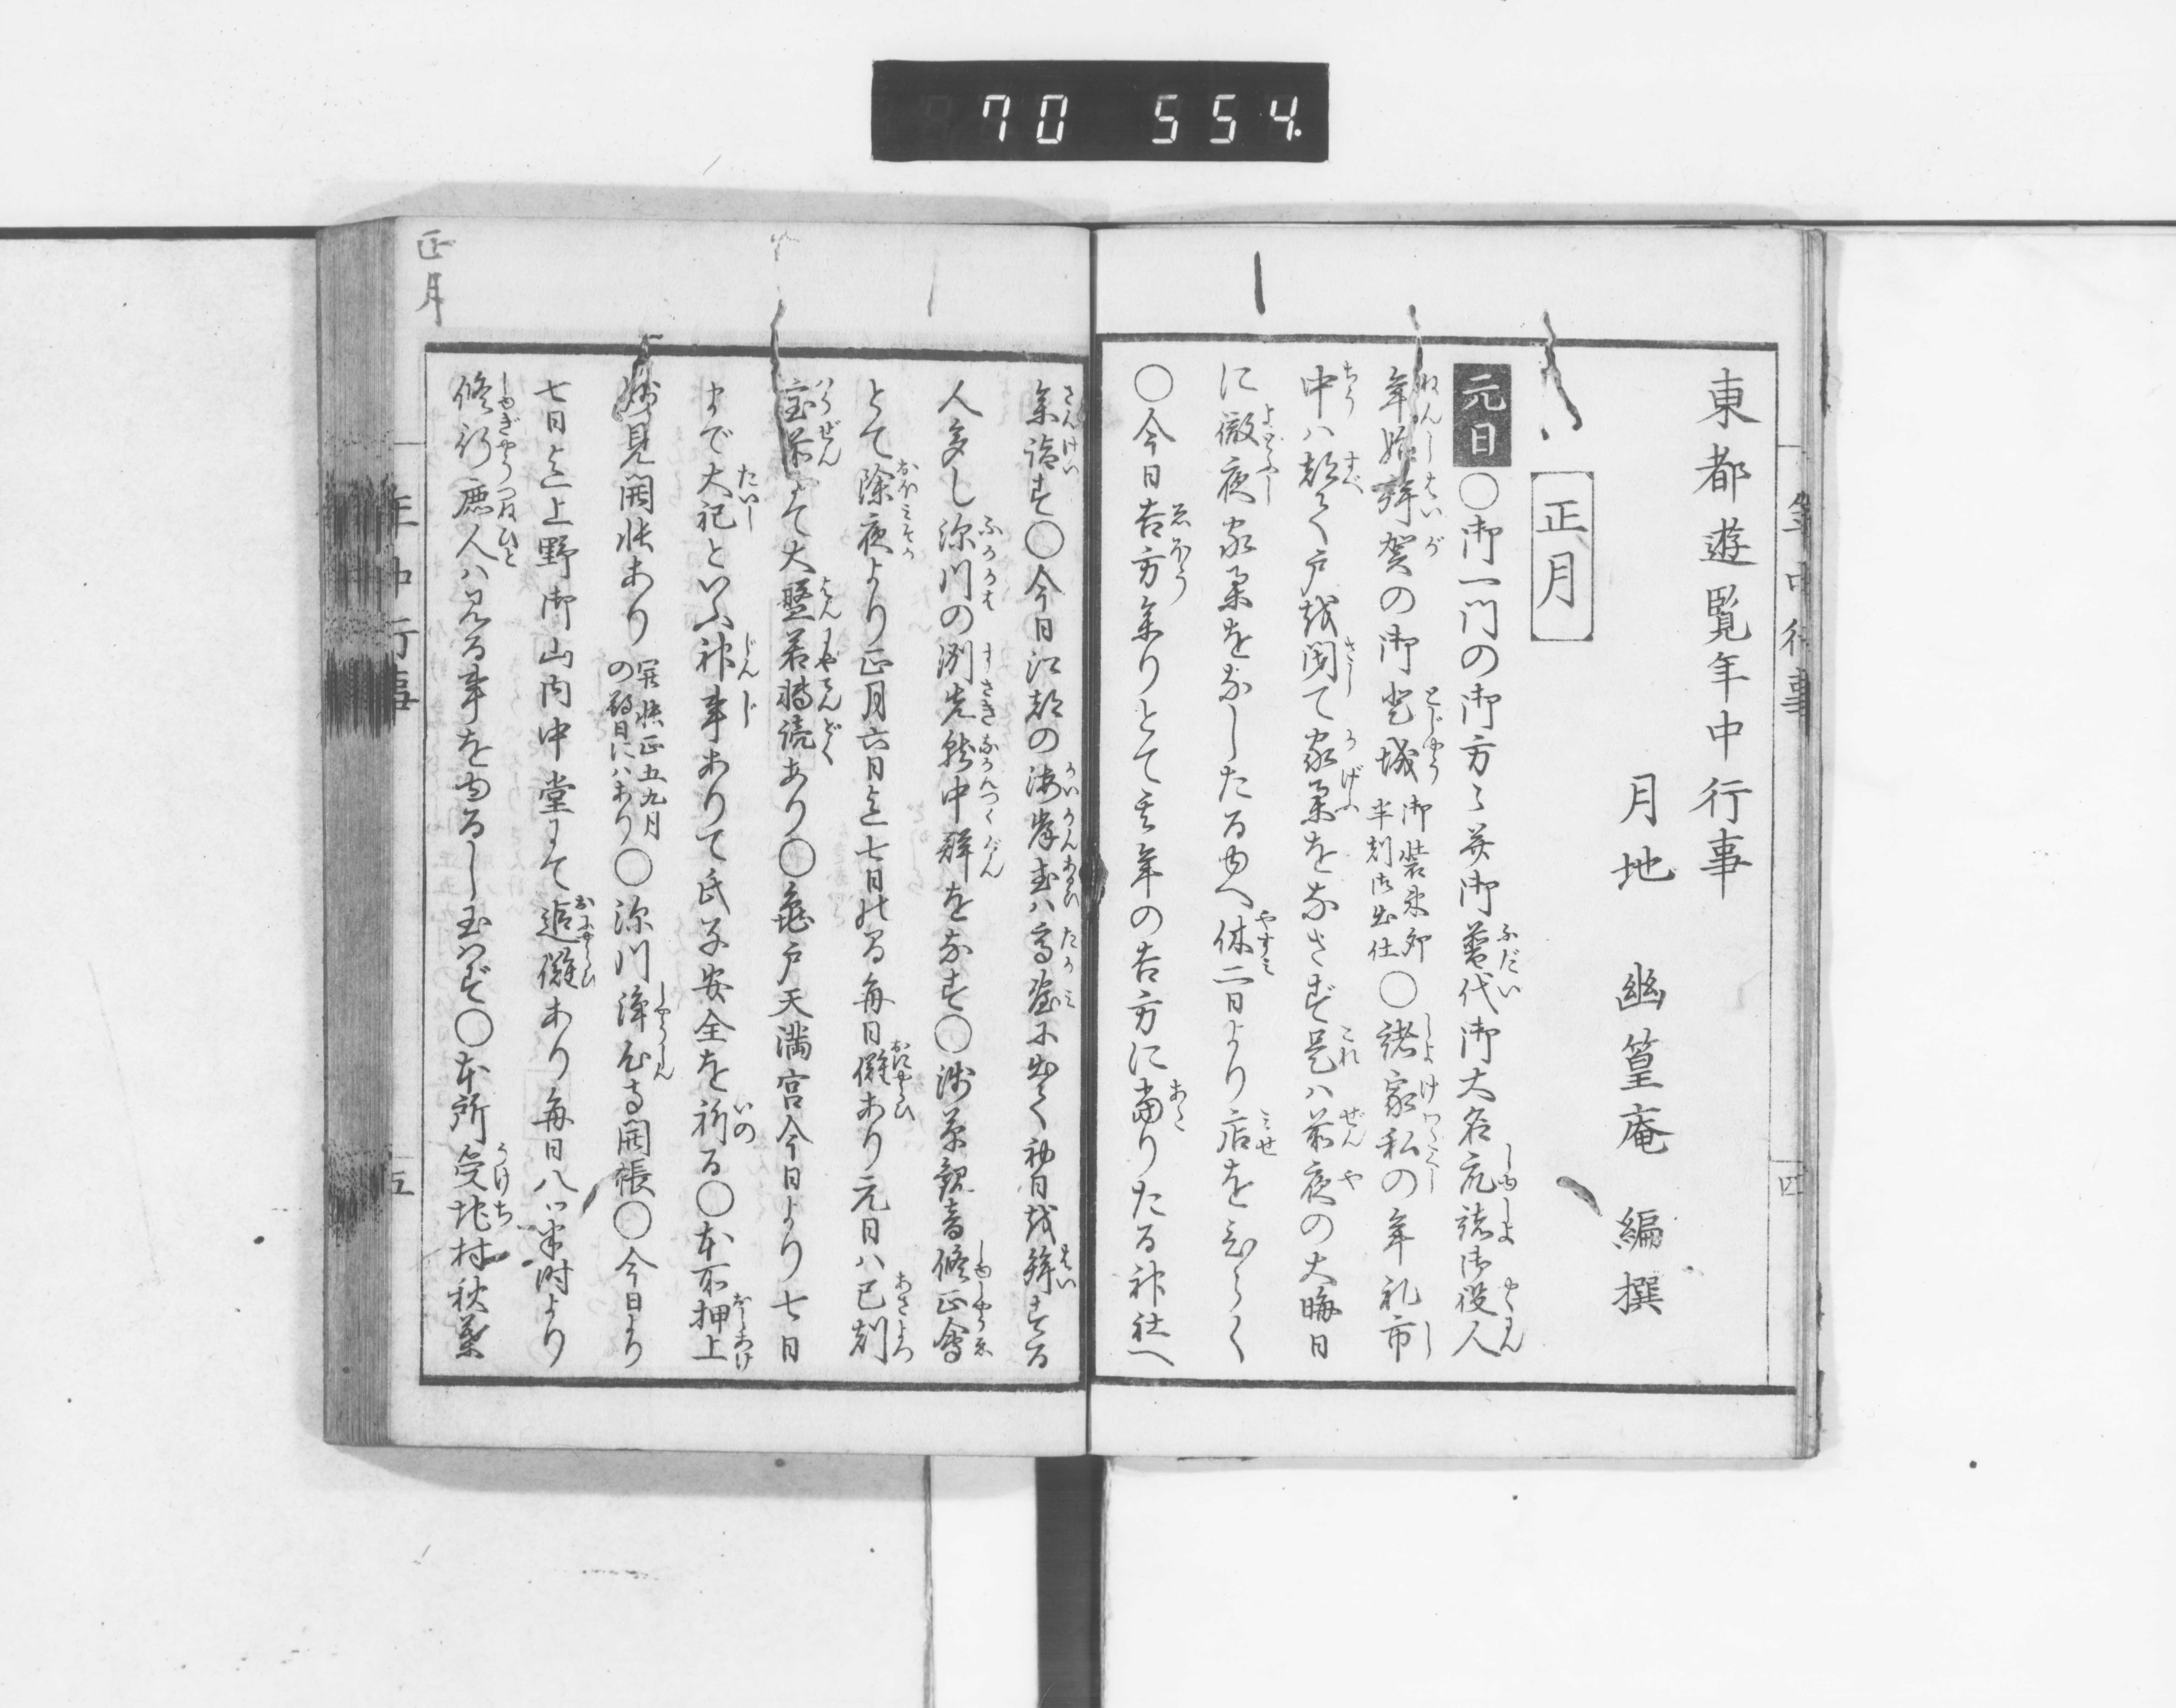 70 554.
年中行事
四
東都遊覧年中行事
月地 幽篁庵 編撰
正月
元日〇御一門の御方々并御普代御大名方諸御役人
年始拝賀の御登城 御装束卯半刻御出仕 〇諸家私の年礼市
中ハ都て戸越閉て家業をなさず是ハ前夜の大晦日
に徹夜家業をなしたる由へ休二日より店をひらく
〇今日吉方参りとて其年の吉方に当りたる神社へ
参詣す〇今日江都の海岸或ハ高盤に出て初日越拝する
人多し深川の洲先就中群をなす〇浅草観音修正会
とて除夜より正月六日迄七日の間毎日儺あり元日ハ巳刻
宝前にて大盤若転読あり〇亀戸天満宮今日より七日
まで大祀といふ神事ありて氏子安全を祈る〇本所押上
妙見開帳あり 開帳正五九月の朔日にハあり 〇深川浄心寺開帳〇今日より
七日迄上野御山内中堂にて追儺あり毎日八ツ半時より
修行庶人ハ見る事をゆるし玉はず〇本所受地村秋葉
正月
年中行事
五